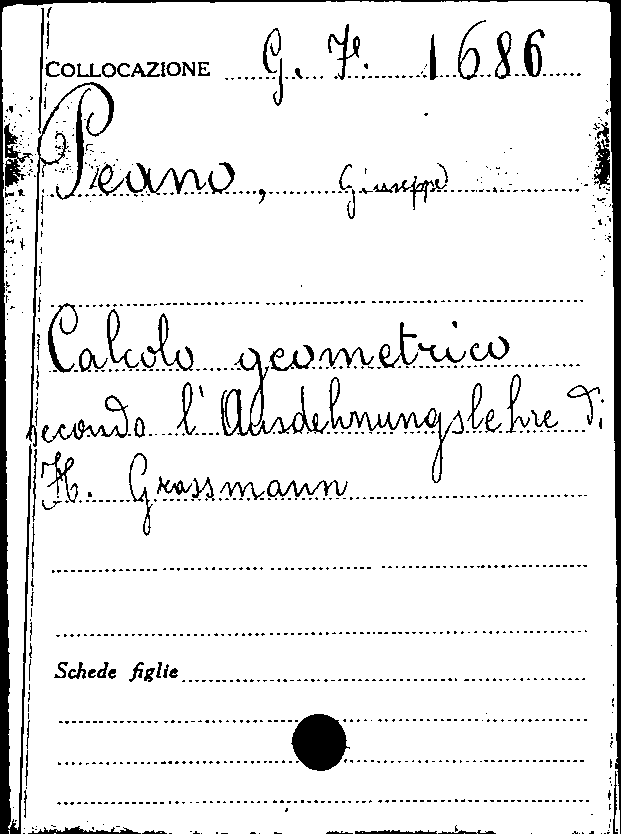 COLLOCAZIONE G. F. 1686
Peano, Giuseppe
Calcolo geometrico
secondo l'Ausdehnungslehre di
H. Grassmann
Schede figlie